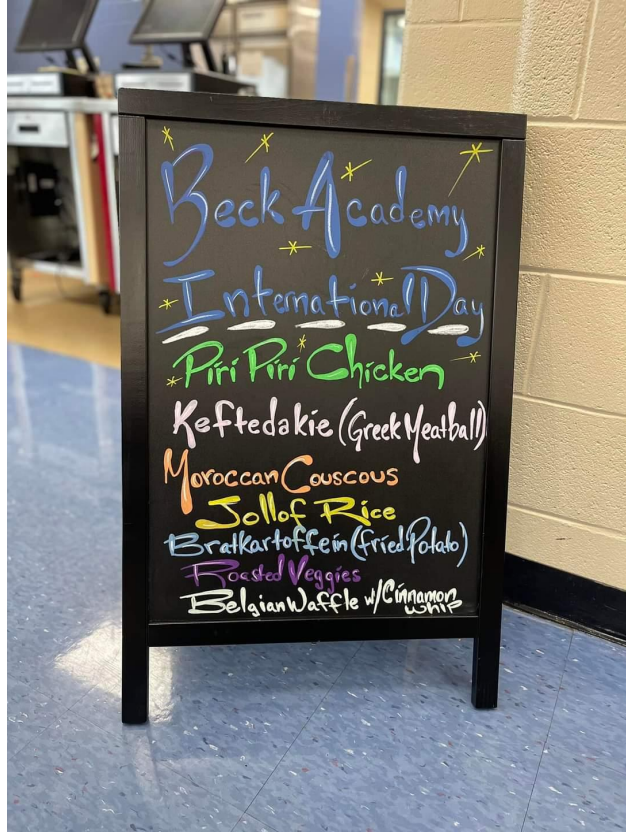 Beck Academy
International Day
Piri Piri Chicken
Keftedakie (Greek Meatball)
Moroccan Couscous
Jollof Rice
Bratkartoffein (fried Potato)
Roasted Veggies
Belgian Waffle w/ Cinnamon
whip